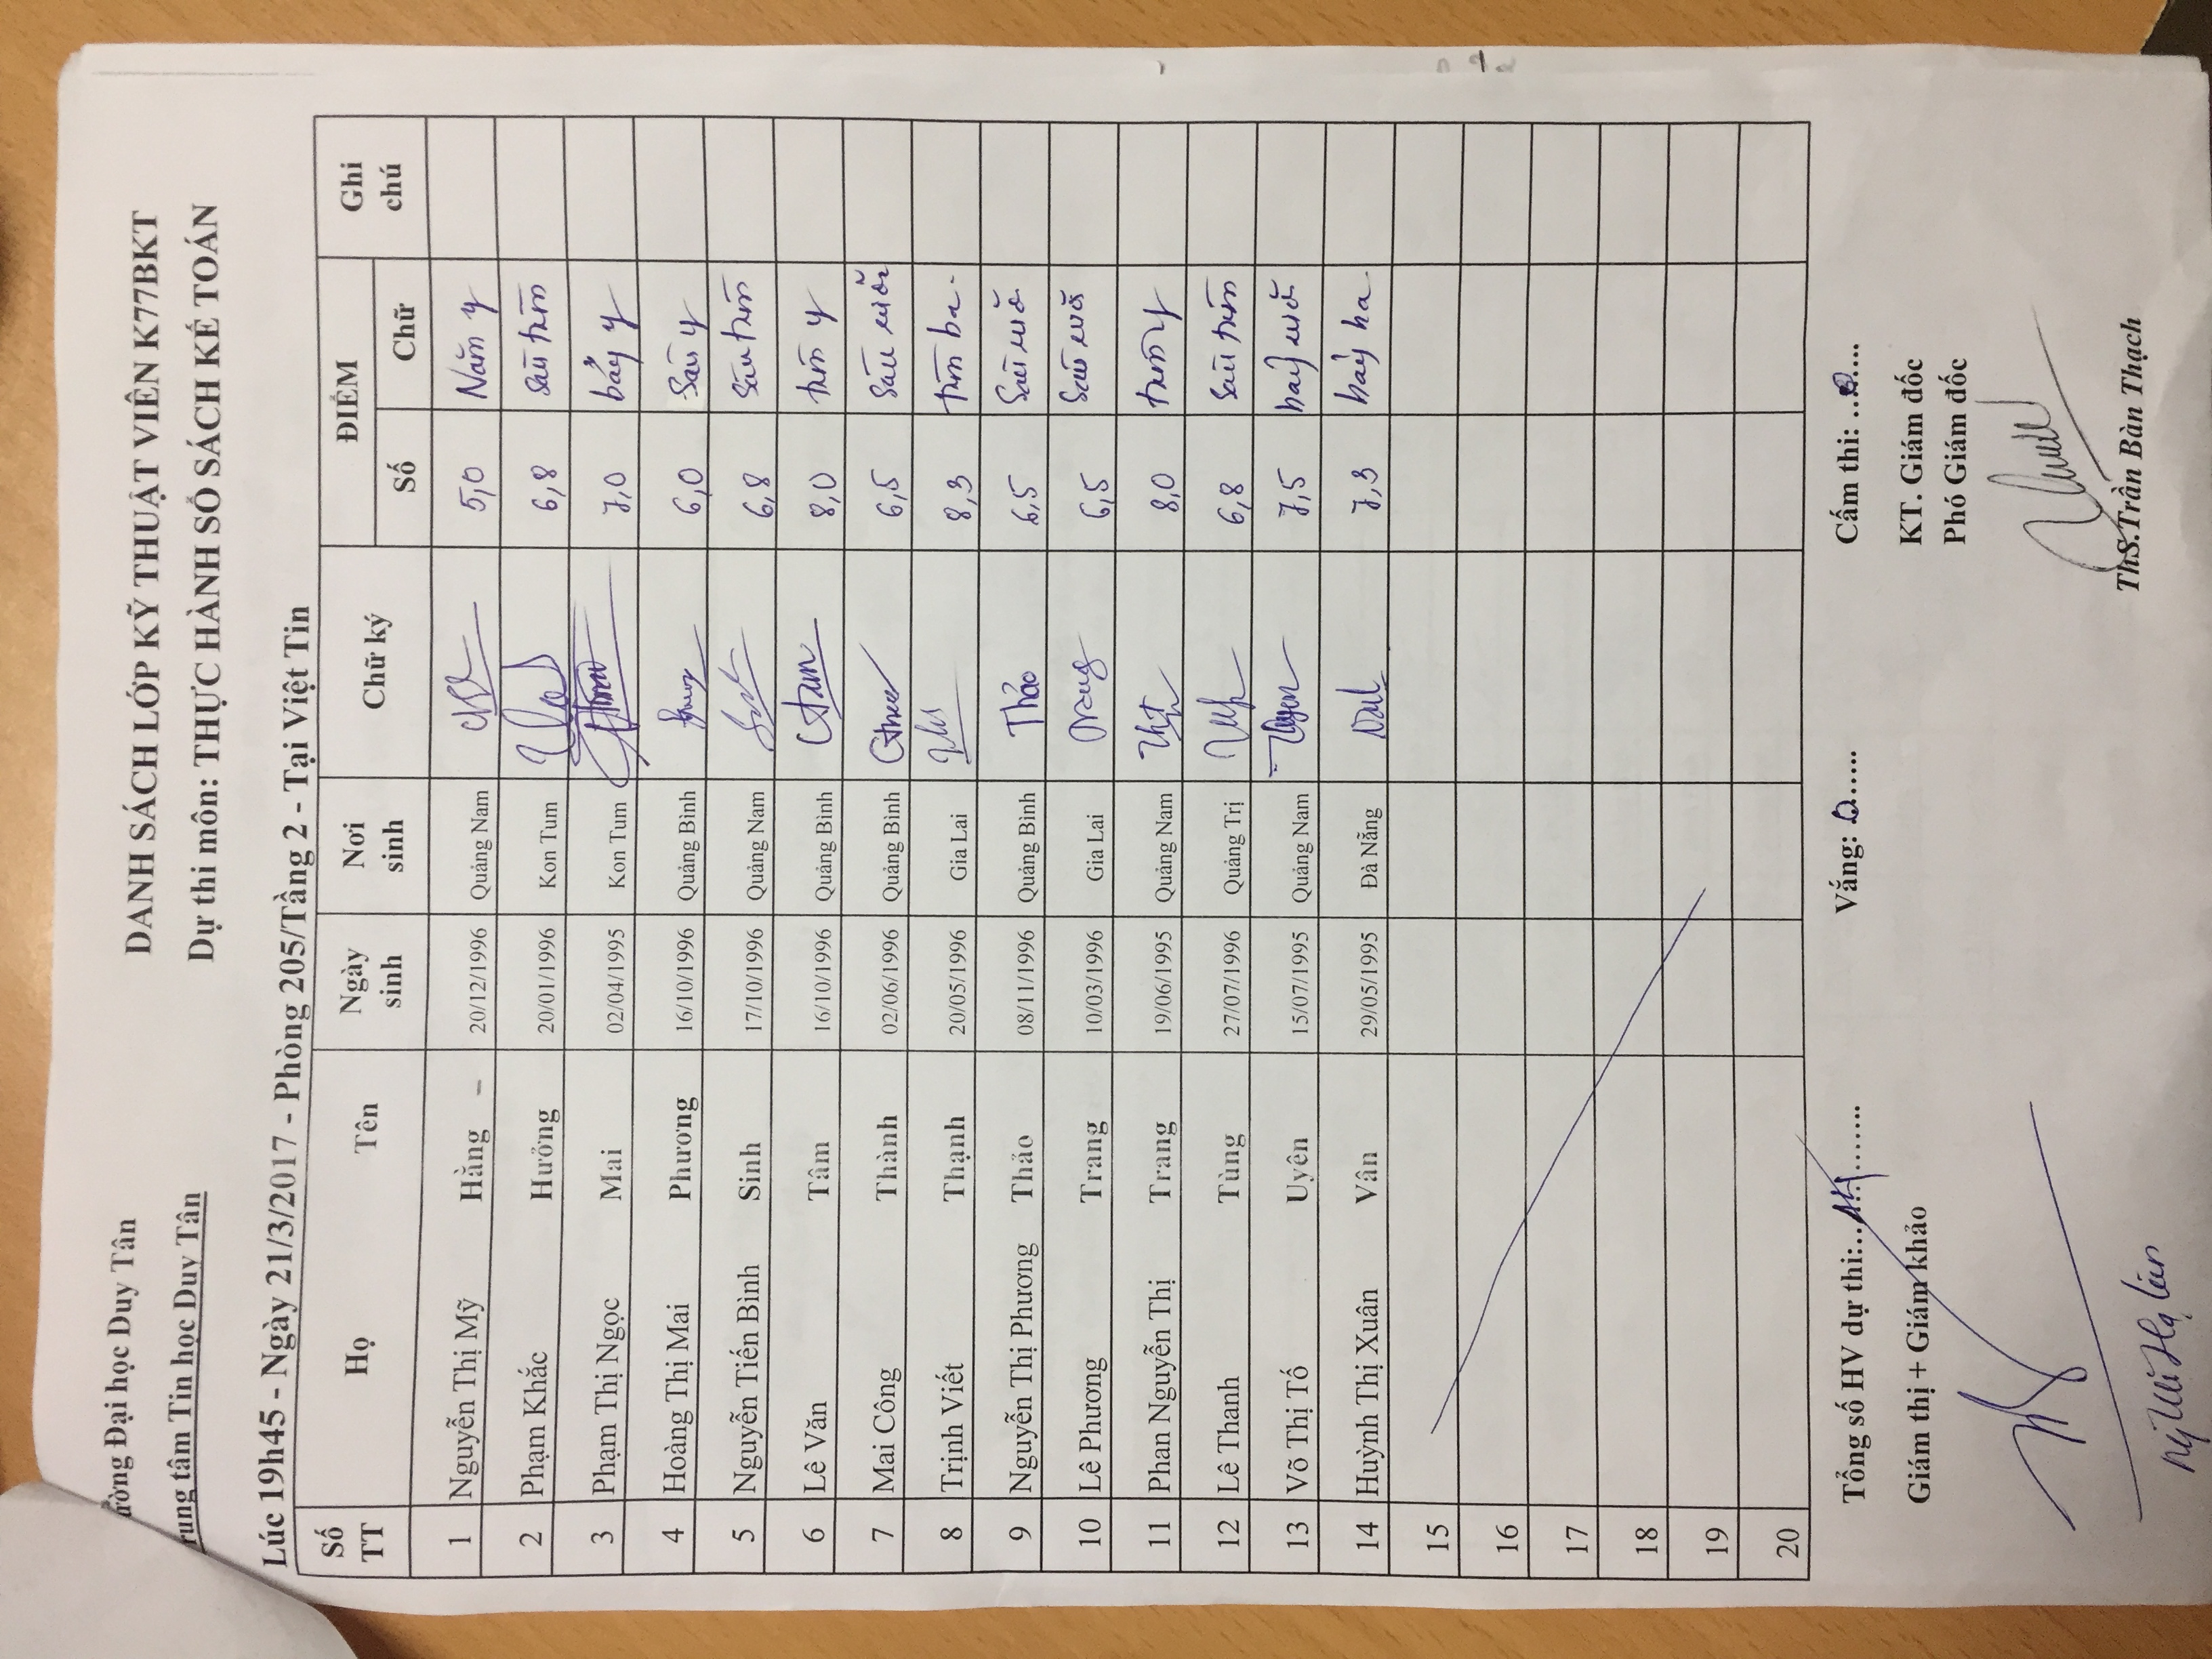 ường Đại học Duy Tân
rung tâm Tin học Duy Tân
DANH SÁCH LỚP KỸ THUẬT VIÊN K77BKT
Dự thi môn: THỰC HÀNH SỔ SÁCH KẾ TOÁN
Lúc 19h45 - Ngày 21/3/2017 - Phòng 205/Tầng 2 - Tại Việt Tin
Số TT Họ Tên Ngày sinh Nơi sinh Chữ ký ĐIỂM Số Chữ Ghi chú
1 Nguyễn Thị Mỹ Hằng 20/12/1996 Quảng Nam 5,0 Năm y
2 Phạm Khắc Hưởng 20/01/1996 Kon Tum 6,8 Sáu tám
3 Phạm Thị Ngọc Mai 02/04/1995 Kon Tum 7,0 bảy y
4 Hoàng Thị Mai Phương 16/10/1996 Quảng Bình 6,0 Sáu y
5 Nguyễn Tiến Bình Sinh 17/10/1996 Quảng Nam 6,8 Sáu tám
6 Lê Văn Tâm 16/10/1996 Quảng Bình 8,0 tám y
7 Mai Công Thành 02/06/1996 Quảng Bình 6,5 Sáu rưỡi
8 Trịnh Viết Thạnh 20/05/1996 Gia Lai 8,3 tám ba
9 Nguyễn Thị Phương Thảo 08/11/1996 Quảng Bình Thảo 6,5 Sáu rưỡi
10 Lê Phương Trang 10/03/1996 Gia Lai Trang 6,5 Sáu rưỡi
11 Phan Nguyễn Thị Trang 19/06/1995 Quảng Nam 8,0 tám y
12 Lê Thanh Tùng 27/07/1996 Quảng Trị 6,8 Sáu tám
13 Võ Thị Tố Uyên 15/07/1995 Quảng Nam 7,5 bảy rưỡi
14 Huỳnh Thị Xuân Vân 29/05/1995 Đà Nẵng 7,3 bảy ba
15
16
17
18
19
20
Tổng số HV dự thi: 14 Vắng: 0 Cấm thi: 0
Giám thị + Giám khảo KT. Giám đốc
Phó Giám đốc
ThS.Trần Bàn Thạch